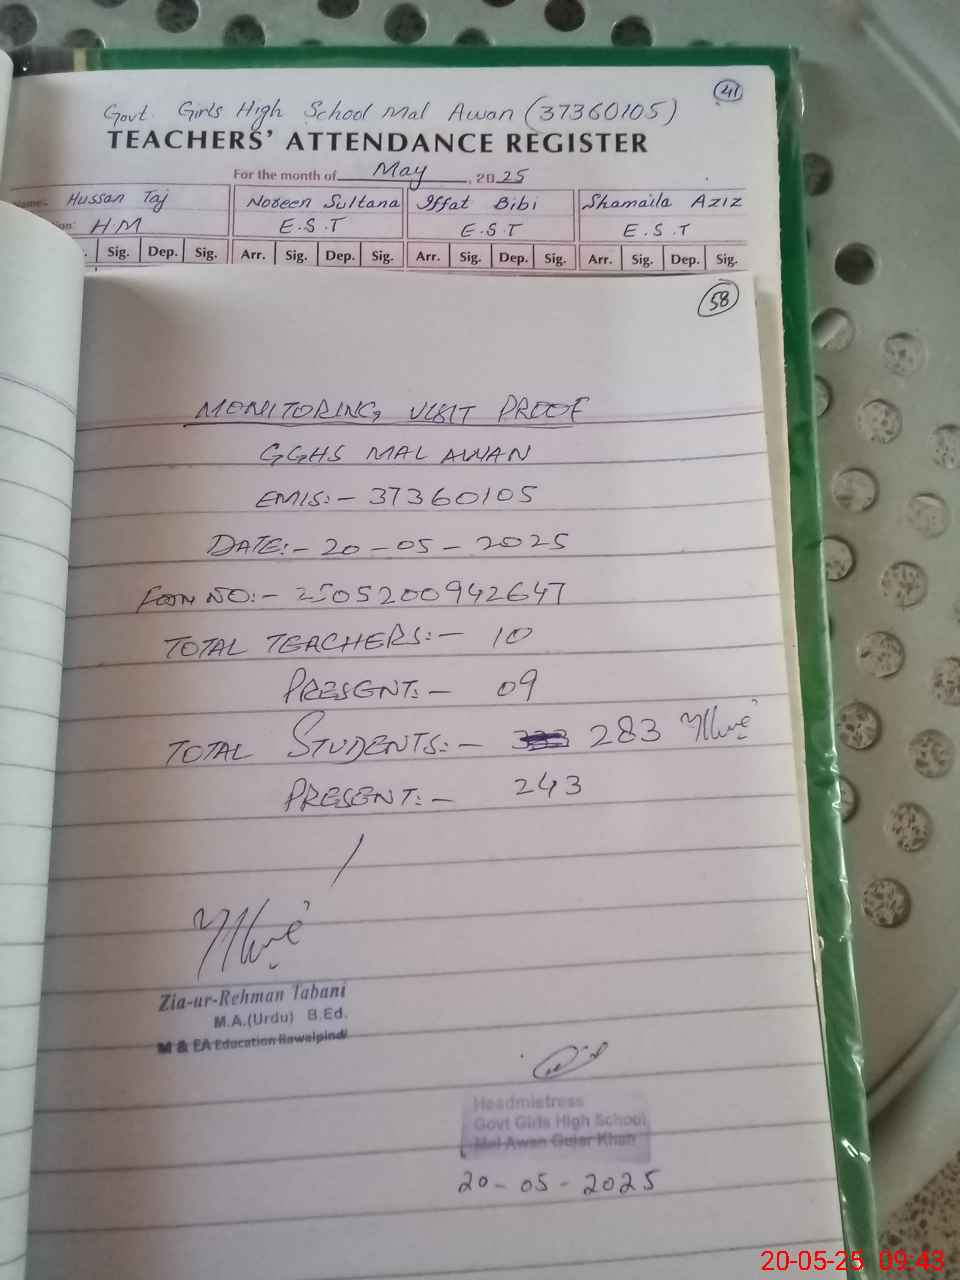 41
Govt. Girls High School Mal Awan (37360105)
TEACHERS' ATTENDANCE REGISTER
For the month of May, 2025
Name: Hussan Taj Noreen Sultana Iffat Bibi Shamaila Aziz
tion: HM E.S.T E.S.T E.S.T
Sig. Dep. Sig. Arr. Sig. Dep. Sig. Arr. Sig. Dep. Sig. Arr. Sig. Dep. Sig.
58
MONITORING VISIT PROOF
GGHS MAL AWAN
EMIS:- 37360105
DATE:- 20-05-2025
FORM NO:- 2505200942647
TOTAL TEACHERS:- 10
PRESENT:- 09
TOTAL STUDENTS:- 283
PRESENT:- 243
Zia-ur-Rehman Tabani
M.A.(Urdu) B.Ed.
M & EA Education Rawalpindi
Headmistress
Govt Girls High School
Mal Awan Gujar Khan
20-05-2025
20-05-25 09:43